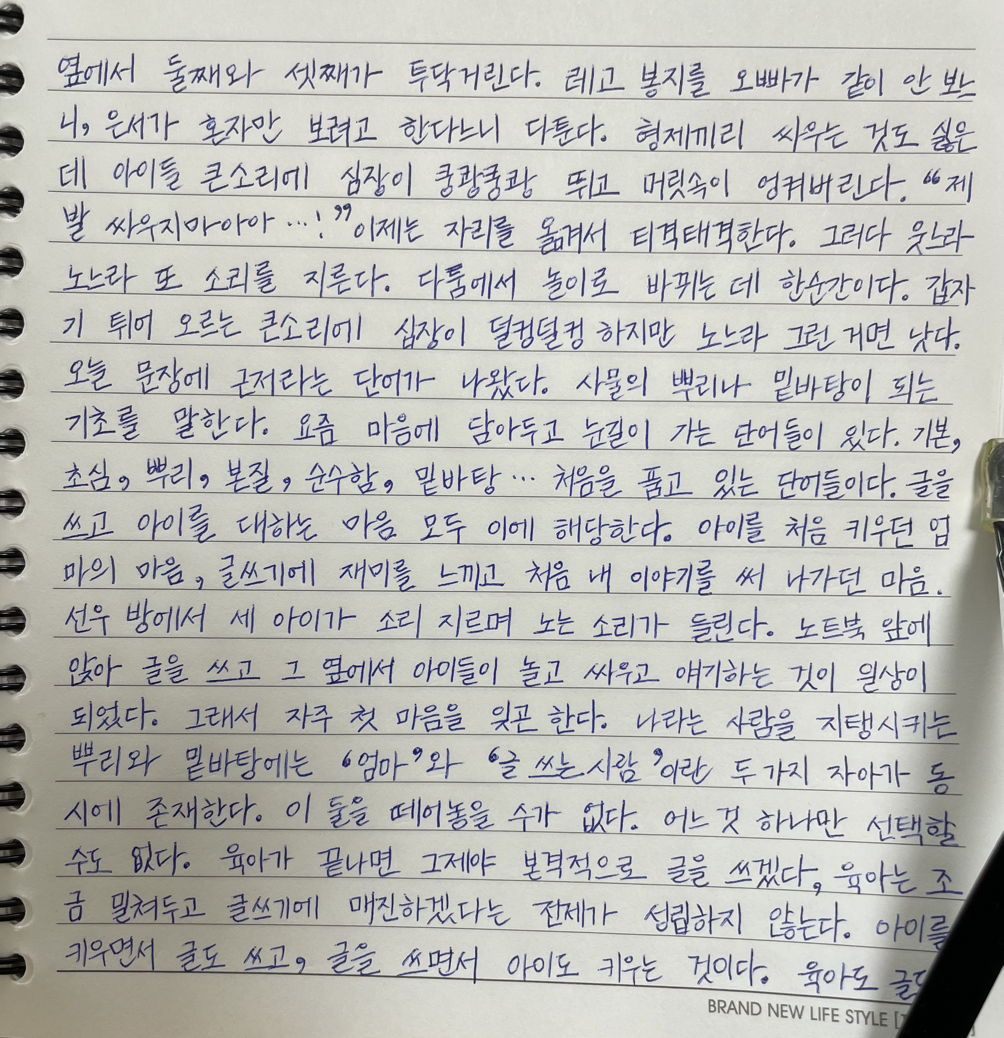 옆에서 둘째와 셋째가 투닥거린다. 레고 봉지를 오빠가 같이 안 보느
니, 은서가 혼자만 보려고 한다느니 다툰다. 형제끼리 싸우는 것도 싫은
데 아이들 큰소리에 심장이 쿵쾅쿵쾅 뛰고 머릿속이 엉켜버린다. “제
발 싸우지마아아 …!” 이제는 자리를 옮겨서 티격태격한다. 그러다 웃느라
노느라 또 소리를 지른다. 다툼에서 놀이로 바뀌는 데 한순간이다. 갑자
기 튀어 오르는 큰소리에 심장이 덜컹덜컹 하지만 노느라 그런 거면 낫다.
오늘 문장에 근저라는 단어가 나왔다. 사물의 뿌리나 밑바탕이 되는
기초를 말한다. 요즘 마음에 담아두고 눈길이 가는 단어들이 있다. 기본,
초심, 뿌리, 본질, 순수함, 밑바탕 … 처음을 품고 있는 단어들이다. 글을
쓰고 아이를 대하는 마음 모두 이에 해당한다. 아이를 처음 키우던 엄
마의 마음, 글쓰기에 재미를 느끼고 처음 내 이야기를 써 나가던 마음.
선우 방에서 세 아이가 소리 지르며 노는 소리가 들린다. 노트북 앞에
앉아 글을 쓰고 그 옆에서 아이들이 놀고 싸우고 얘기하는 것이 일상이
되었다. 그래서 자주 첫 마음을 잊곤 한다. 나라는 사람을 지탱시키는
뿌리와 밑바탕에는 ‘엄마’와 ‘글 쓰는 사람’이란 두 가지 자아가 동
시에 존재한다. 이 둘을 떼어놓을 수가 없다. 어느 것 하나만 선택할
수도 없다. 육아가 끝나면 그제야 본격적으로 글을 쓰겠다, 육아는 조
금 밀쳐두고 글쓰기에 매진하겠다는 전제가 성립하지 않는다. 아이를
키우면서 글도 쓰고, 글을 쓰면서 아이도 키우는 것이다. 육아도
BRAND NEW LIFE STYLE